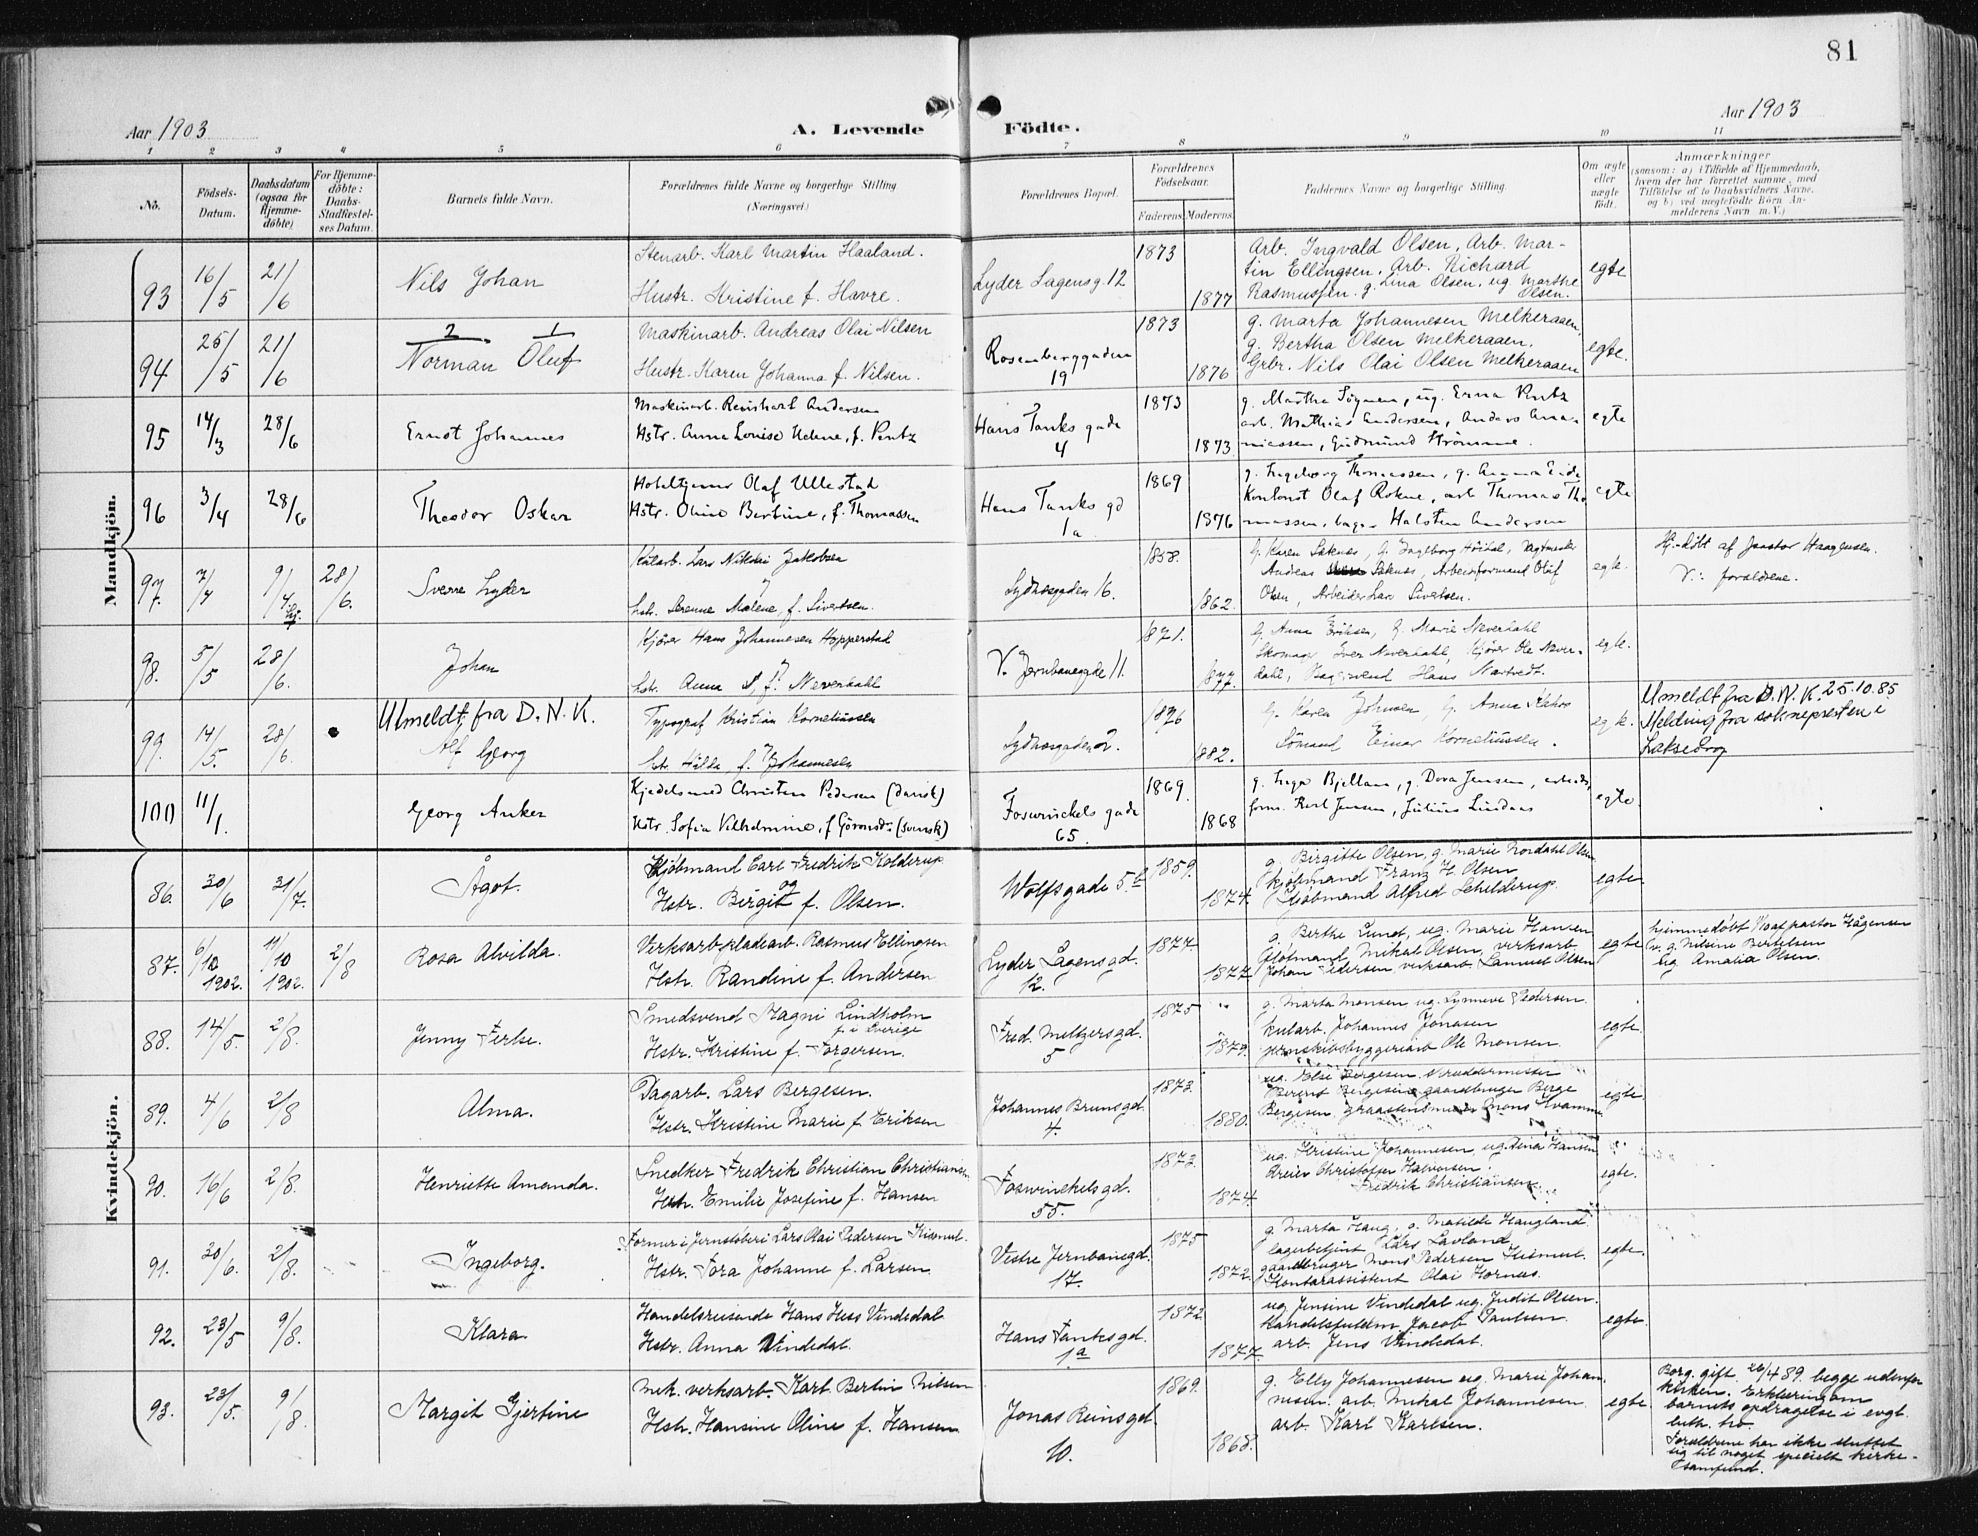 81
Aar 1903
A. Levende Födte.
Aar 1903
1 2 3 4 5 6 7 8 9 10 11
No.
Födsels-Datum.
Daabsdatum (ogsaa for Hjemme-döbte)
For Hjemme-döbte: Daabs-Stadfæstel-ses Datum.
Barnets fulde Navn.
Forældrenes fulde Navne og borgerlige Stilling
(Næringsvei.)
Forældrenes Bopæl.
Forældrenes Födselsaar.
Faderens Moderens
Faddernes Navne og borgerlige Stilling.
Om ægte eller uægte födt.
Anmærkninger
(saasom: a) i Tilfælde af Hjemmedaab, hvem der har forrettet samme, med Tilföielse af to Daabsvidners Navne, og b) ved uægtefödte Börn An-melderens Navn m. V.)
Mandkjön.
93 16/5 21/6 Nils Johan
Stenarb. Karl Martin Haaland.
Hustr. Kristine f. Havre.
Lyder Sagensg. 12
1873
1877
Arb. Ingvald Olsen, Arb. Mar-
tin Ellingsen, Arb. Richard
Rasmussen. g. Lina Olsen, ug. Marthe
Olsen.
egte
94 25/5 21/6
2 1
Norman Oluf
Maskinarb. Andreas Olai Nilsen
Hustr. Karen Johanna f. Nilsen.
Rosenberggaden
19
1873
1876
g. Marta Johannesen Melkeraaen,
g. Bertha Olsen Melkeraaen.
Grbr. Nils Olai Olsen Melkeraaen
egte.
95 14/3 28/6 Ernst Johannes
Maskinarb. Reinhart Andersen
Hstr. Anna Louise Helene, f. Pentz
Hans Tanks gade
4
1873
1873
g. Martha Sögnen, ug. Erna Pentz
arb. Mathias Andersen, Anders Ana-
niassen, Gudmund Strömme.
egte
96 3/4 28/6 Theodor Oskar
Hoteltjener Olaf Ullestad
Hstr. Oline Bertine, f. Thomassen
Hans Tanks gd
1a
1869
1876
g. Ingeborg Thomassen, g. Anna Eide
Kontorist Olaf Rokne, arb Thomas Tho
massen, Halsten Andersen
egte
97. 7/4 9/4 28/6. Sverre Lyder
Kularb. Lars Nikolai Jakobsen
hstr. Serenne Malene, f. Sivertsen.
Sydnesgaden 16.
1858.
1862.
G. Karen Søknes, G. Ingeborg Høidal, Vegtmester
Andreas Søknes, Arbeidsformand Oluf
Olsen, Arbeider Lars Sivertsen.
egte.
Hj.-døbt af Pastor Haagensen.
V.: forældrene.
98. 5/5 28/6. Johan
Kjører Hans Johannesen Hopperstad
hstr. Anna S. f. Neverdahl
V. Jernbanegade 11.
1871.
1877.
G. Anna Eriksen, G. Marie Neverdahl
Skomager Iver Neverdahl, Kjører Ole Never-
dahl, Bagersvend Hans
egte.
99. 14/5. 28/6.
Utmeldt fra D. N. K.
Alf Georg
Typograf Kristian Korneliussen
hstr. Hilda, f. Johannesen
Sydnesgaden 2.
1876
1882.
G. Karen Johnsen, G. Anna
Sømand Einar Korneliussen.
egte.
Utmeldt fra D. N. K. 25.10.85
Melding fra soknepresten i
Lakselvog
100 11/1. Georg Anker
Kjedelsmed Christen Pedersen (dansk)
Hstr. Sofia Vilhelmine, f. (svensk)
Foswinckels gade
65.
1869.
1868
g. Inga Bjelland, g. Dora Jensen, arbeids
form. Karl Jensen, Julius Lindaas
egte.
Kvindekjön.
86. 30/6 31/7. Ågot.
Kjöbmand Carl Fredrik Kolderup
og
Hstr. Birgit f. Olsen.
Wolfsgade 5.b
1859.
1874.
g. Birgitte Olsen, g. Marie Nordahl Olsen
kjöbmand Franz H. Olsen
Kjöbmand Alfred Schilderup.
egte.
87. 6/10 1902. 19/10 1902. 2/8 Rosa Alvilda.
Verksarb. pladearb. Rasmus Ellingsen
Hstr. Randine f. Andersen
Lyder Sagensgd.
12.
1877
1877
g. Berthe Lund, ug. Marie Hansen
Gjötmand Mikal Olsen, verksarb.
Johan Pedersen verksarb. Samuel Olsen
egte
hjemmedöbt v. Pastor Hågensen
v. g. Nilsine Bertelsen
ug. Amalia Olsen.
88. 14/5. 2/8. Jenny Terse.
Smedsvend Magni Lindholm
f. i Sverige
Hstr. Kristine f. Torgersen.
Fred. Meltzersgd.
5
1875
1879.
g. Marta Monsen ug. Synneve Pedersen
kularb. Johannes Jonasen
jernskibsbyggeriarb Ole Monsen.
egte.
89. 4/6 2/8 Alma.
Dagarb. Lars Bergesen.
Hstr. Kristine Marie f. Eriksen
Johannes Brunsgd.
4.
1873.
1880.
ug. Else Bergesen
Berent Bergesen gaardbruger Berge
Bergesen, graastensmurer Mons Kvamme
egte.
90. 16/6 2/8. Henriette Amanda.
Snedker Fredrik Christian Christiansen
Hstr. Emilie Josefine f. Hansen
Foswinckelsgd.
55.
1873.
1874.
ug. Kristine Johannesen, ug. Dina Hansen
dreier Christofer Halvorsen.
Fredrik Christiansen.
egte.
91. 30/6. 2/8. Ingeborg.
Former i Jernstøberi Lars Olai Pedersen Kismul.
Hstr. Tora Johanne f. Larsen.
Vestre Jernbanegd.
17.
1875
1872.
g. Marta Haug, g. Matilde Haugland
lagerbetjent Lars Løvland
gaardbruger Mons Pedersen Kismul.
Kontorassistent Olai Hornes.
egte.
92. 23/5 9/8. Klara.
Handelsreisende Hans Hess Vindedal
Hstr. Anna Vindedal.
Hans Tanksgd.
1a
1872.
1877.
ug. Jensine Vindedal ug. Judit Olsen.
Handelsfuldm. Jacob Paulsen.
arb. Jens Vindedal.
egte.
93. 23/5. 9/8. Margit Gjertine
Mek. verksarb. Karl Bertin Nilsen
Hstr. Hansine Oline f. Hansen
Jonas Reinsgd.
10.
1869.
1868.
g. Elly Johannesen ug. Marie Johan.
nesen. arb. Mikal Johannesen
arb. Karl Karlsen.
egte.
Borg. gift. 26/4 89. begge udenfor
kirken. Erklæring om
barnets opdragelse i evgl.
luth. tro.
Forældrene har ikke sluttet
sig til noget specielt kirke-
samfund.